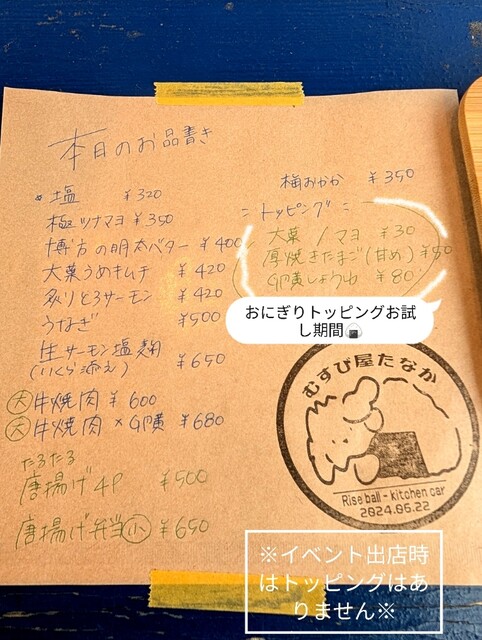 本日のお品書き
塩 ¥320
極ツナマヨ ¥350
博方の明太バター ¥400
大葉うめキムチ ¥420
炙りとろサーモン ¥420
うなぎ ¥500
生サーモン塩麹
(いくら添え) ¥650
大 牛焼肉 ¥600
大 牛焼肉×卵黄 ¥680
たるたる
唐揚げ4P ¥500
唐揚げ弁当 小 ¥650
梅おかか ¥350
=トッピング=
大葉/マヨ ¥30
厚焼きたまご(甘め) ¥50
卵黄しょうゆ ¥80
おにぎりトッピングお試
し期間🍙
むすび屋たなか
Rise ball - kitchen car
2024.06.22
※イベント出店時
はトッピングはあ
りません※